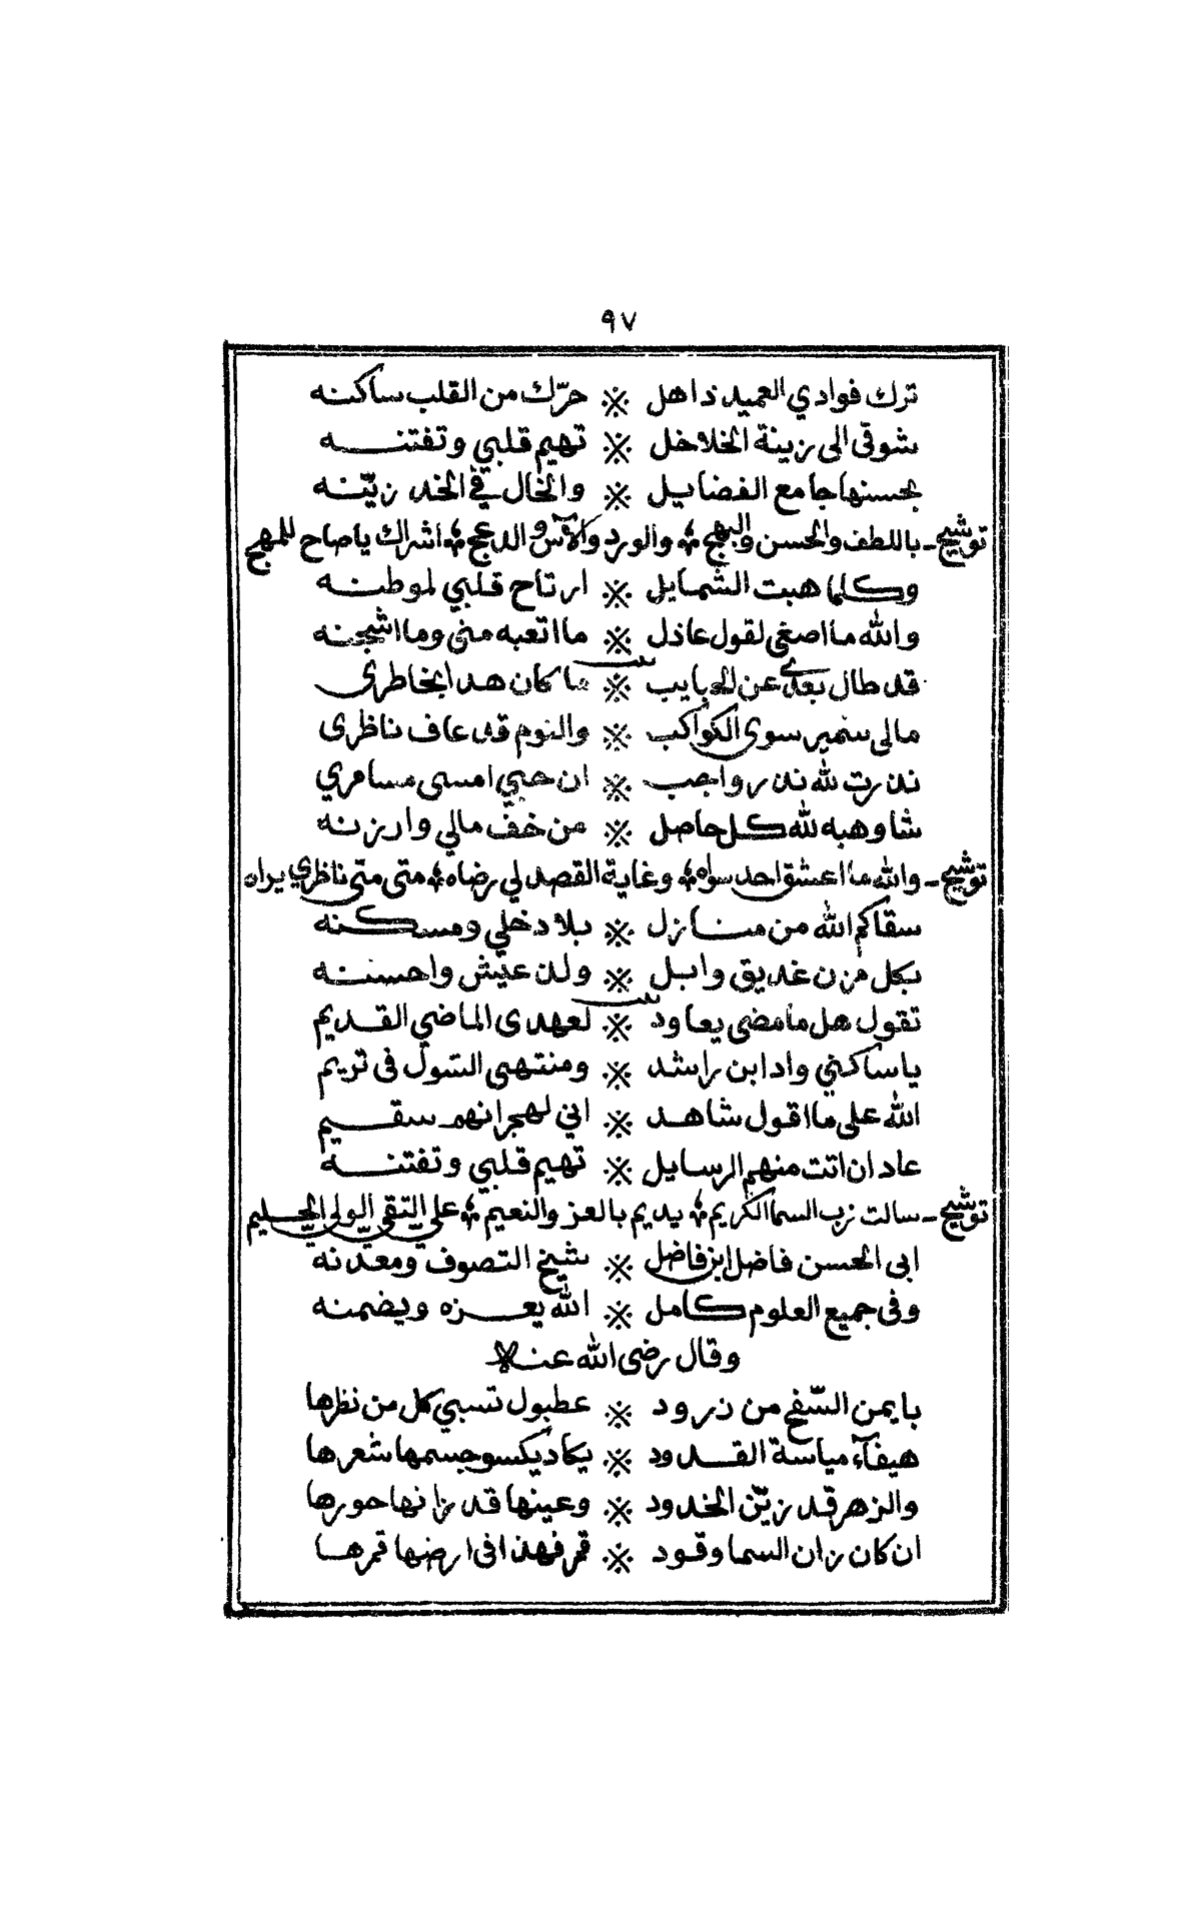 ٩٧
ترك فوادي العميد ذاهل ※ حرّك من القلب ساكنه
شوقي الى زينة الخلاخل ※ تهيم قلبي وتفتنه
بحسنها جامع الفضايل ※ والخال في الخد زيّنه
توشيح - باللطف والحسن والبهج ؛ والورد والآس والدعج ؛ اشراك ياصاح للمهج
وكلما هبت الشمايل ※ ارتاح قلبي لموطنه
والله ما اصغى لقول عاذل ※ ما اتعبه منى وما اشجنه
بيت
قد طال بعدي عن الحبايب ※ ما كان هذا بخاطرى
مالى سمير سوى الكواكب ※ والنوم قد عاف ناظرى
نذرت لله نذر واجب ※ ان حبي امسى مسامري
شاوهبه لله كل حاصل ※ من خفّ مالي وارزنه
توشيح - والله ما اعشق احد سواه ؛ وغاية القصد لي رضاه ؛ متى متى ناظري يراه
سقاكم الله من منازل ※ بلاد خلي ومسكنه
بكل مزن غديق وابل ※ ولذ عيش واحسنه
بيت
تقول هل مامضى يعاود ※ لعهدى الماضي القديم
ياساكني وادابن راشد ※ ومنتهى السّول فى تريم
الله على ما اقول شاهد ※ اني لهجرانهم سقيم
عاد ان اتت منهم الرسايل ※ تهيم قلبي وتفتنه
توشيح - سالت رب السما الكريم ؛ يديم بالعز والنعيم ؛ على التقي الولي الحليم
ابى الحسن فاضل ابن فاضل ※ شيخ التصوف ومعدنه
وفى جميع العلوم كامل ※ الله يعزه ويضمنه
وقال رضى الله عنه
بايمن السّفح من زرود ※ عطبول تسبي كل من نظرها
هيفآء مياسة القدود ※ يكاد يكسوجسمها شعرها
والزهر قد زيّن الخدود ※ وعينها قد زانها حورها
ان كان زان السما وقود ※ قمر فهذا فى ارضها قمرها